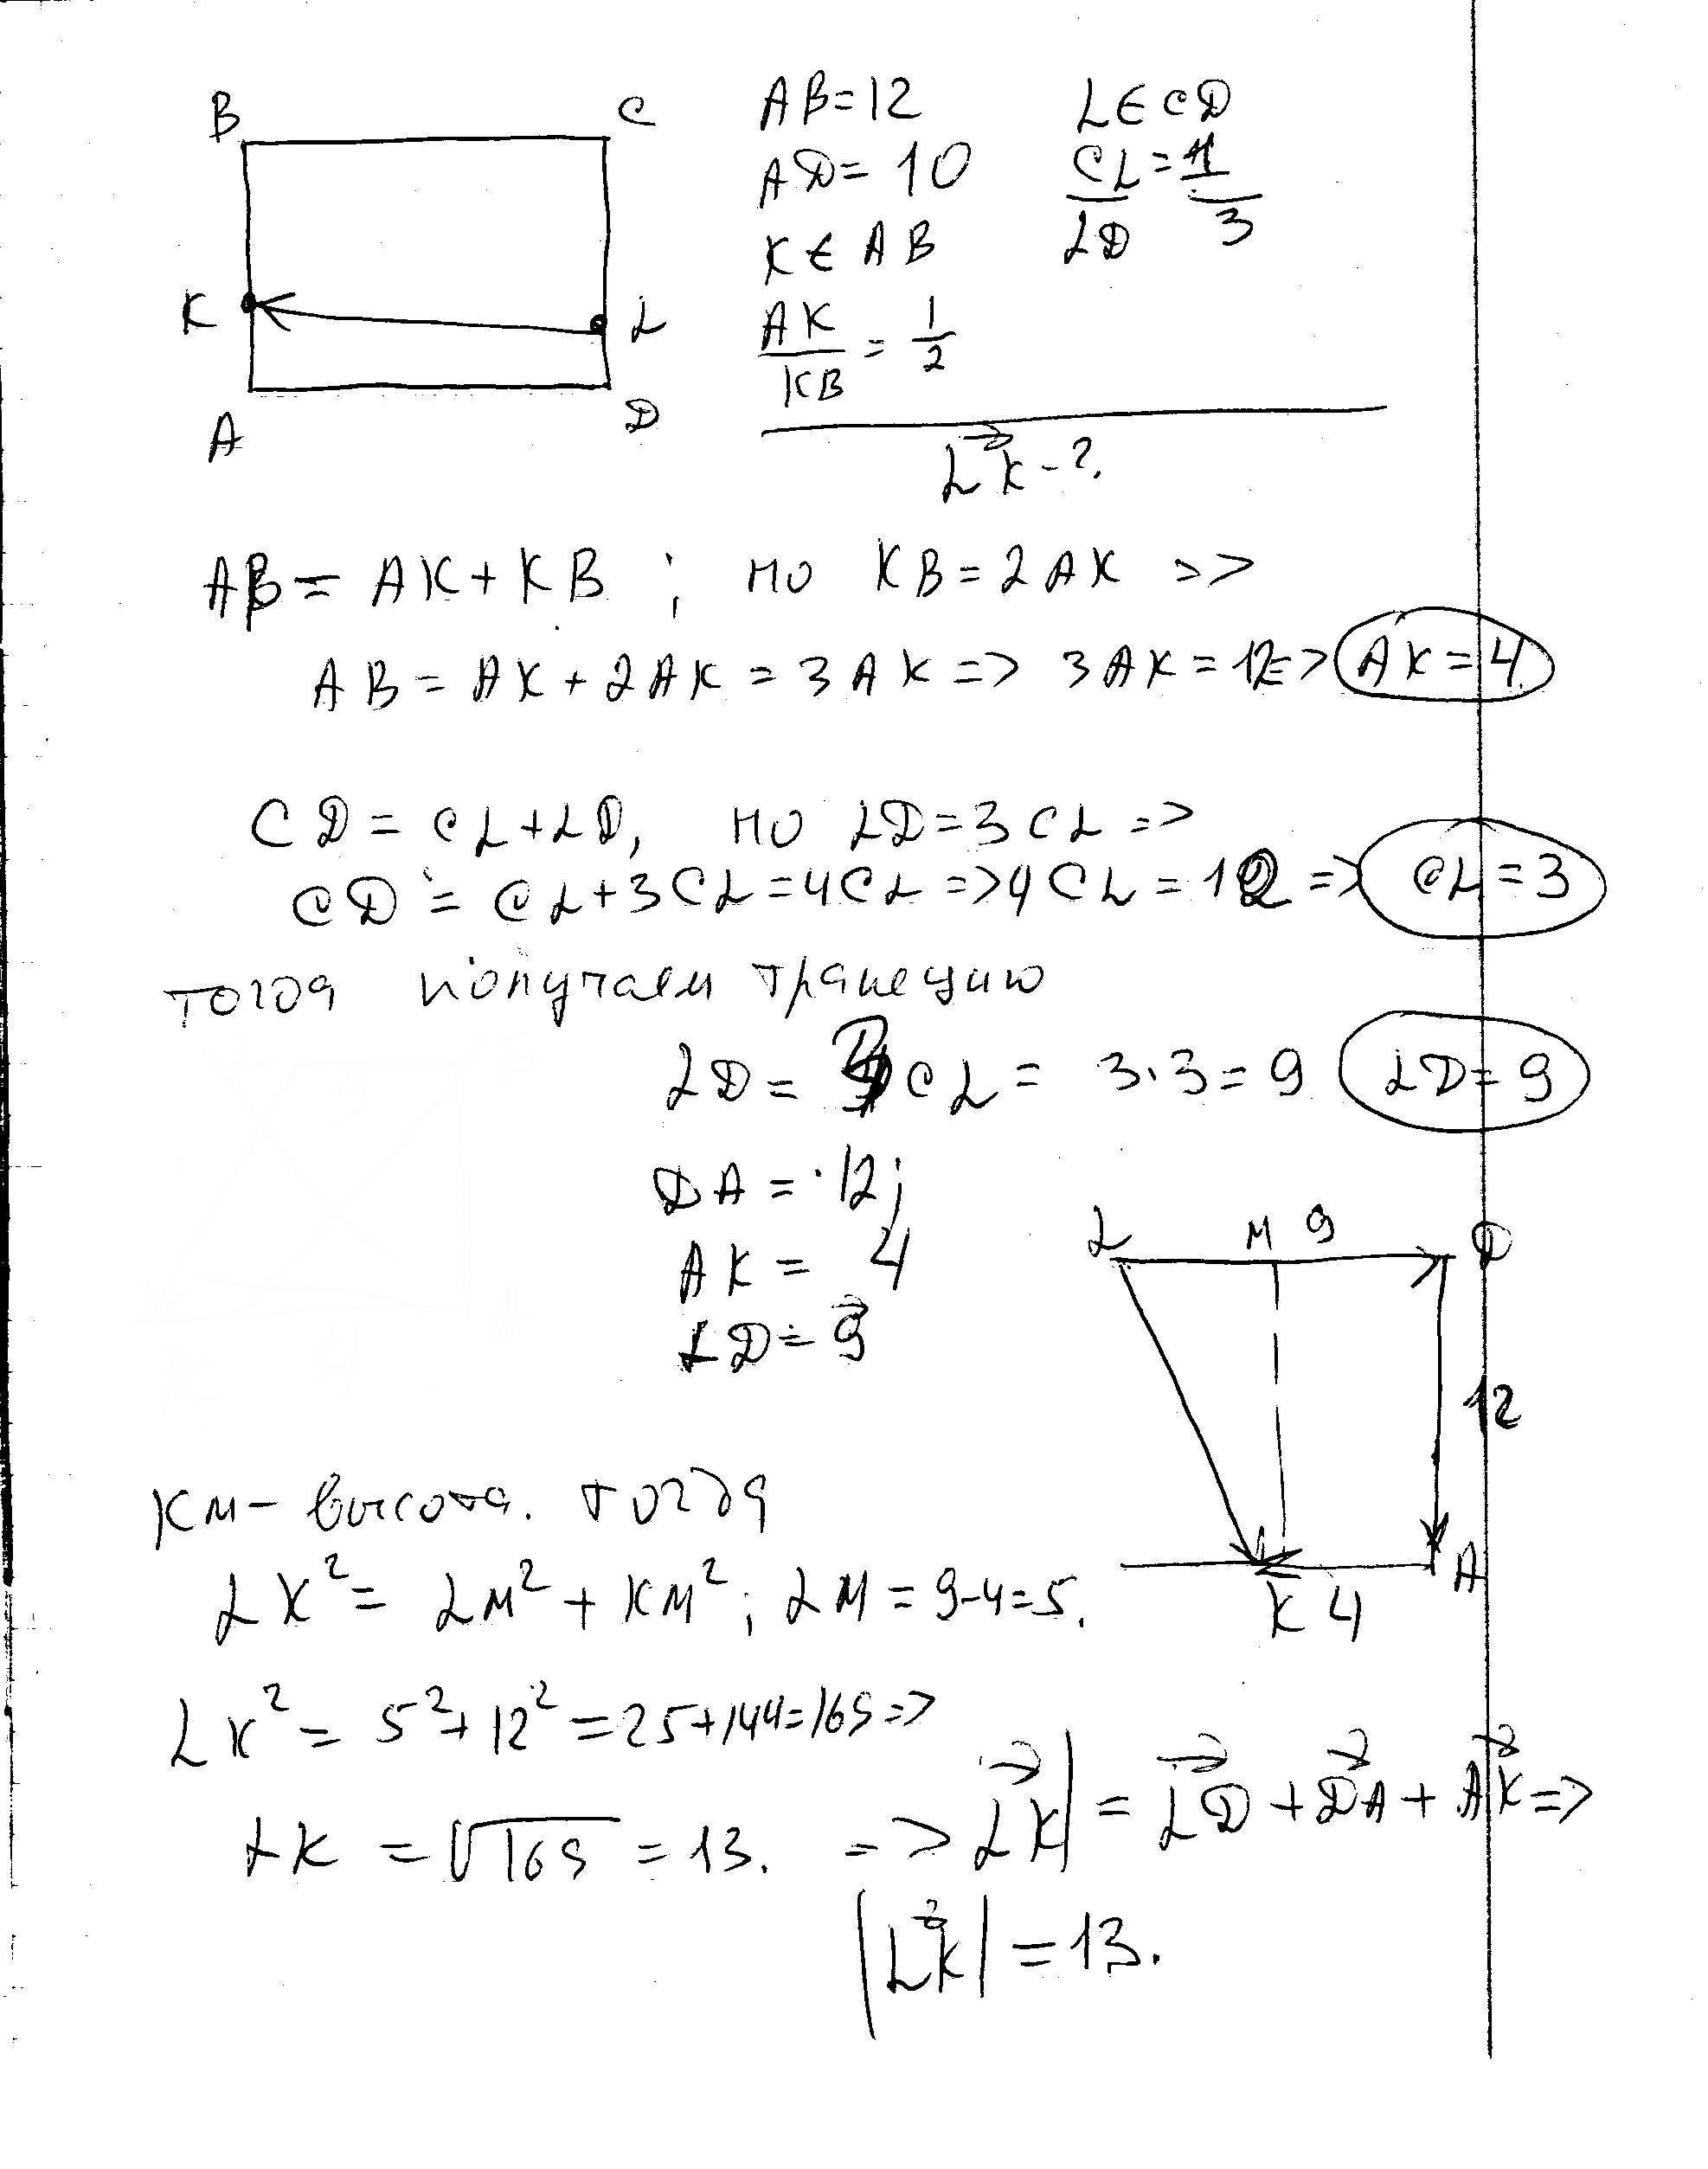 B C
K L
A D
AB=12 L∈CD
AD=10 CL/LD=1/3
K∈AB
AK/KB=1/2
LK-?
AB=AK+KB; но KB=2AK =>
AB=AK+2AK=3AK=>3AK=12=>AK=4
CD=CL+LD, но LD=3CL=>
CD=CL+3CL=4CL=>4CL=12=>CL=3
тогда получаем трапецию
LD=3CL=3·3=9 LD=9
DA=12;
AK=4
LD=9
L M 9 D
12
K 4 A
KM-высота. тогда
LK²=LM²+KM²; LM=9-4=5.
LK²=5²+12²=25+144=169=>
LK=√169=13. => LK|=LD+DA+AK=>
|LK|=13.